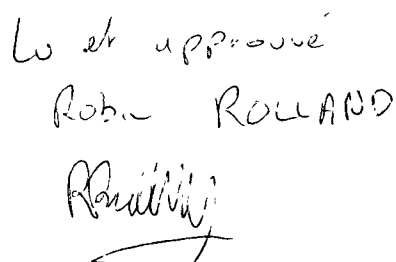 Lu et approuvé
Robin ROLLAND